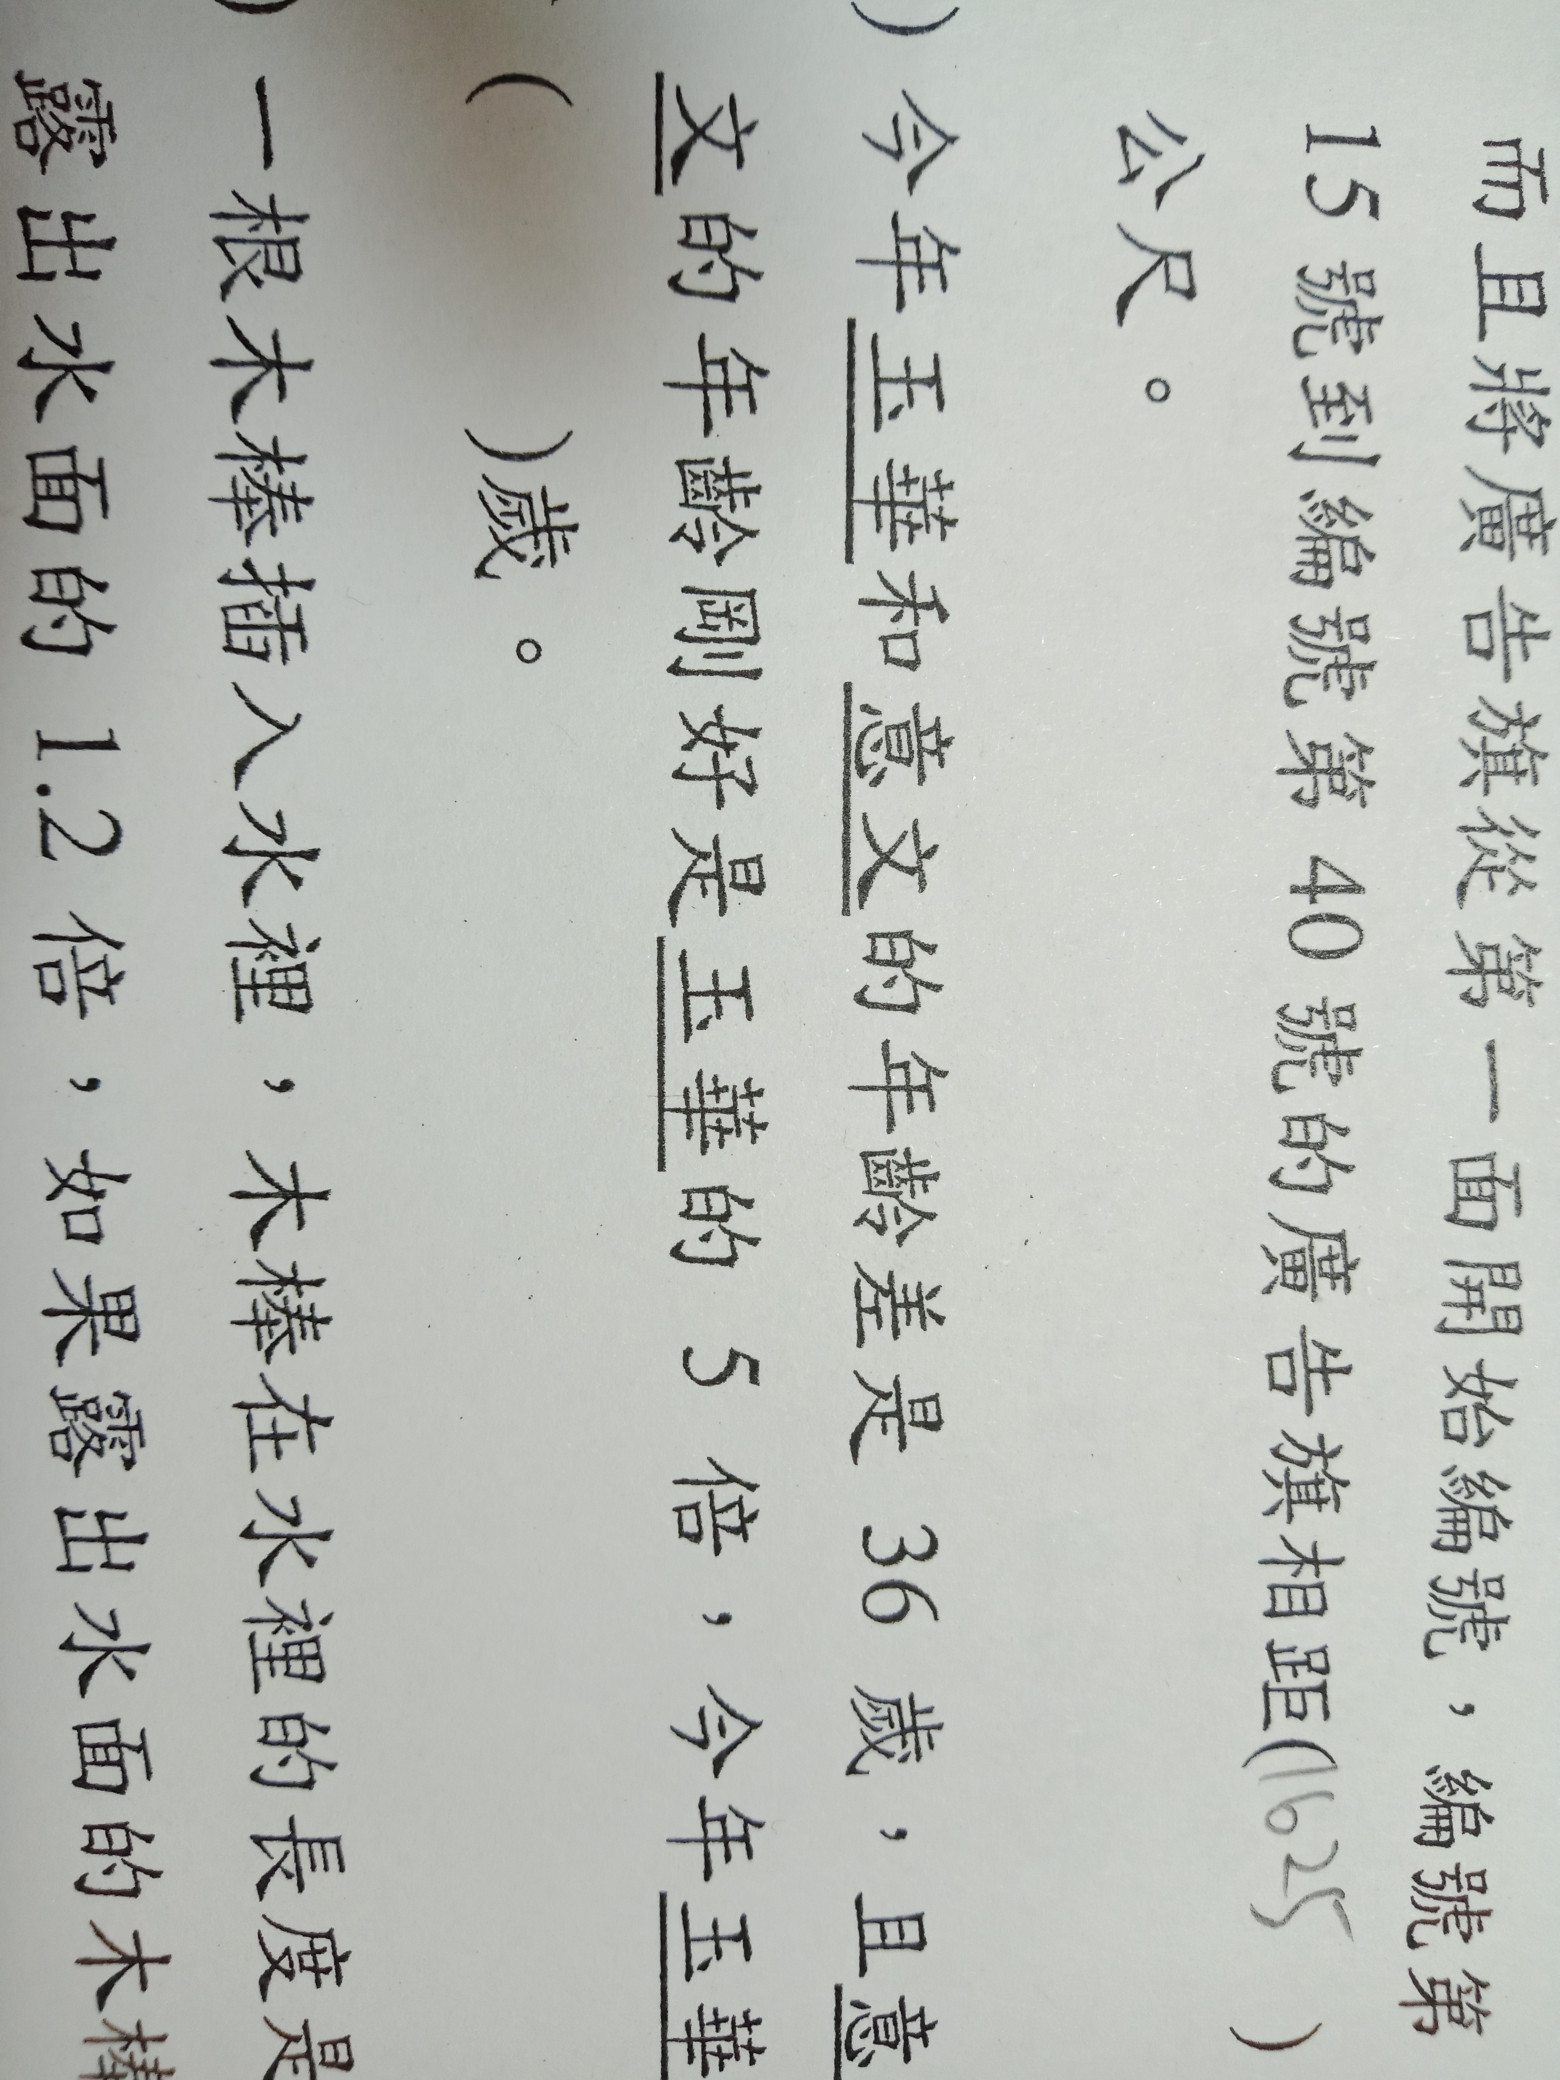 而且將廣告旗從第一面開始編號,編號第
15 號到編號第 40 號的廣告旗相距(1625 )
公尺。
)今年玉華和意文的年齡差是 36 歲,且意
文的年齡剛好是玉華的 5 倍,今年玉華
( )歲。
)一根木棒插入水裡,木棒在水裡的長度是
露出水面的 1.2 倍,如果露出水面的木棒